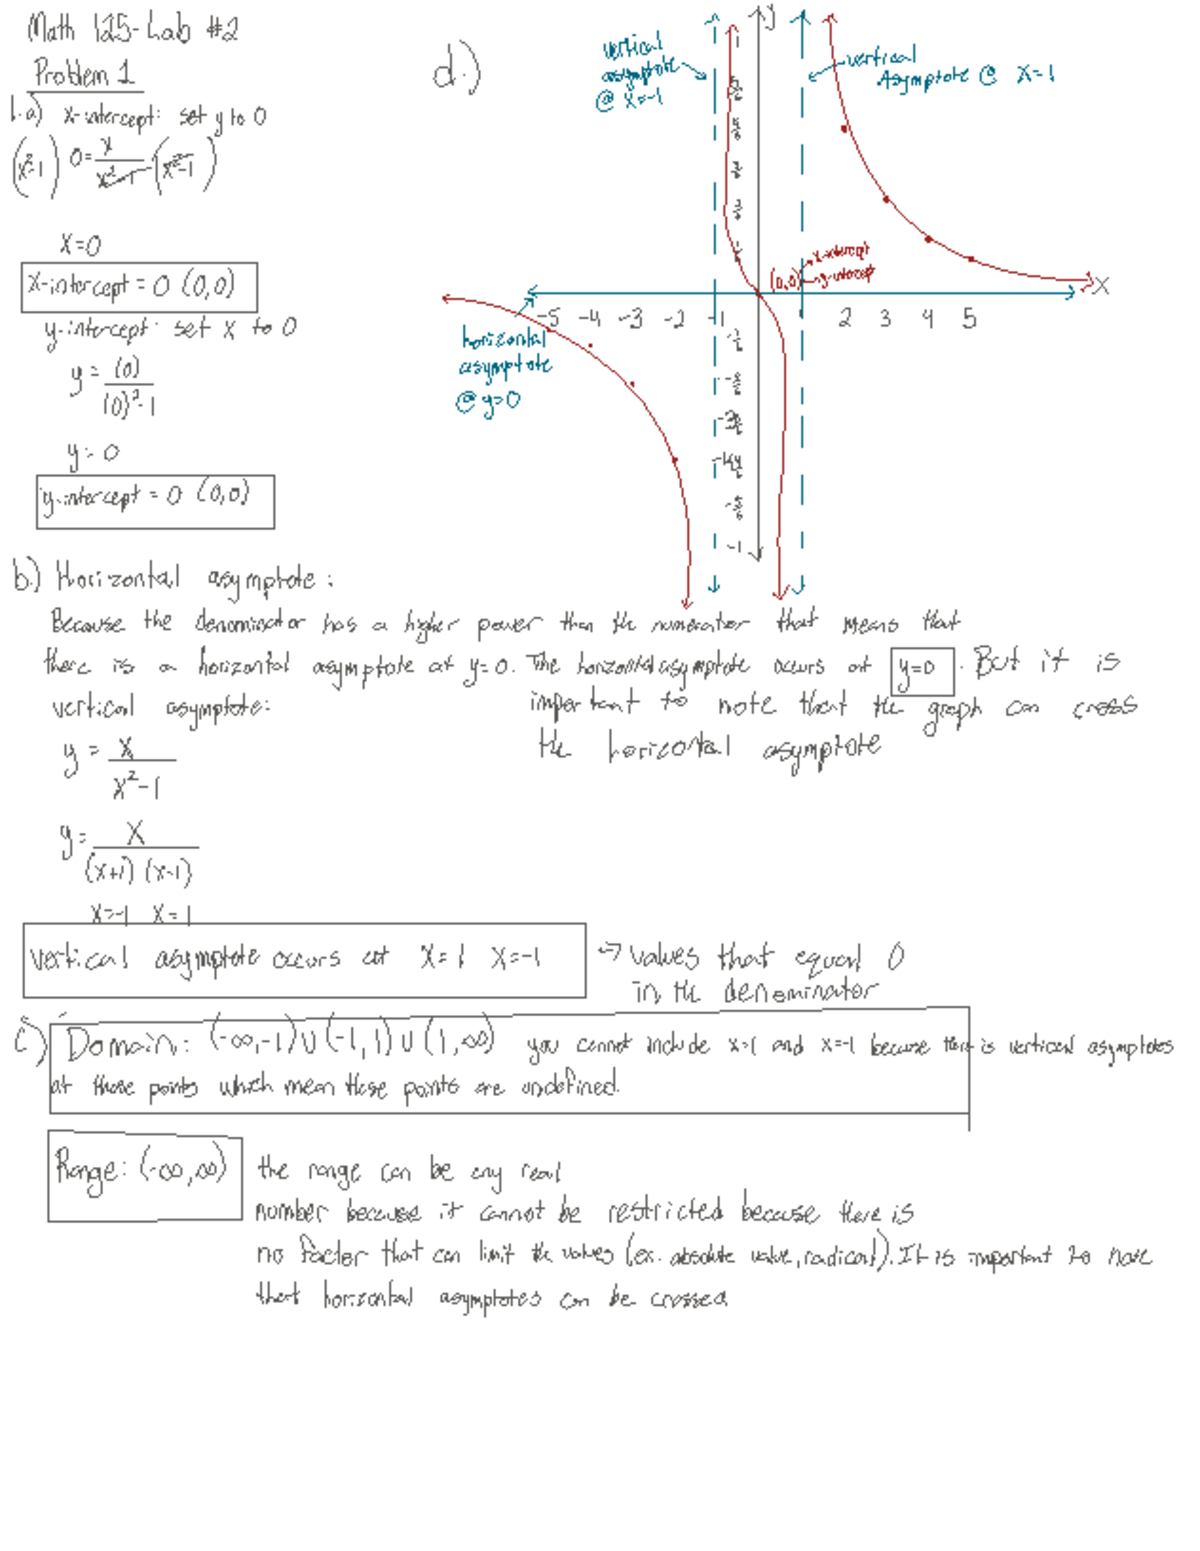 Math 125-Lab #2
Problem 1
1.a) x-intercept: set y to 0
(x²-1) 0 = x/(x²-1) · (x²-1)
x=0
x-intercept = 0 (0,0)
y-intercept: set x to 0
y = (0)/((0)²-1)
y = 0
y-intercept = 0 (0,0)
d.)
y
vertical
asymptote
@ x=-1
vertical
Asymptote @ x=1
1
(0,0)
x-intercept
y-intercept
x
-5 -4 -3 -2 -1 2 3 4 5
horizontal
asymptote
@ y=0
-1
b.) Horizontal asymptote:
Because the denominator has a higher power than the numerator that means that
there is a horizontal asymptote at y=0. The horizontal asymptote occurs at y=0. But it is
important to note that the graph can cross
the horizontal asymptote
vertical asymptote:
y = x/(x²-1)
y = x/((x+1)(x-1))
x=-1 x=1
vertical asymptote occurs at x=1 x=-1 → values that equal 0
in the denominator
c) Domain: (-∞,-1)∪(-1,1)∪(1,∞) you cannot include x=1 and x=-1 because there is vertical asymptotes
at those points which mean these points are undefined.
Range: (-∞,∞) the range can be any real
number because it cannot be restricted because there is
no factor that can limit the values (ex. absolute value, radical). It is important to note
that horizontal asymptotes can be crossed